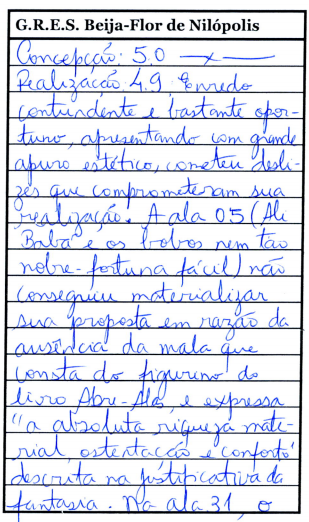 G.R.E.S. Beija-Flor de Nilópolis
Concepção: 5.0 —x—
Realização 4.9 Enredo
contundente e bastante opor-
tuno, apresentando com grande
apuro estético, cometeu desli-
zes que comprometeram sua
realização. A ala 05 (Ali
Babá e os bobos nem tão
nobre-fortuna fácil) não
conseguiu materializar
sua proposta em razão da
ausência da mala que
consta do figurino do
livro Abre-Alas, e expressa
"a absoluta riqueza mate-
rial ostentação e conforto"
descrita na justificativa da
fantasia. Na ala 31, o